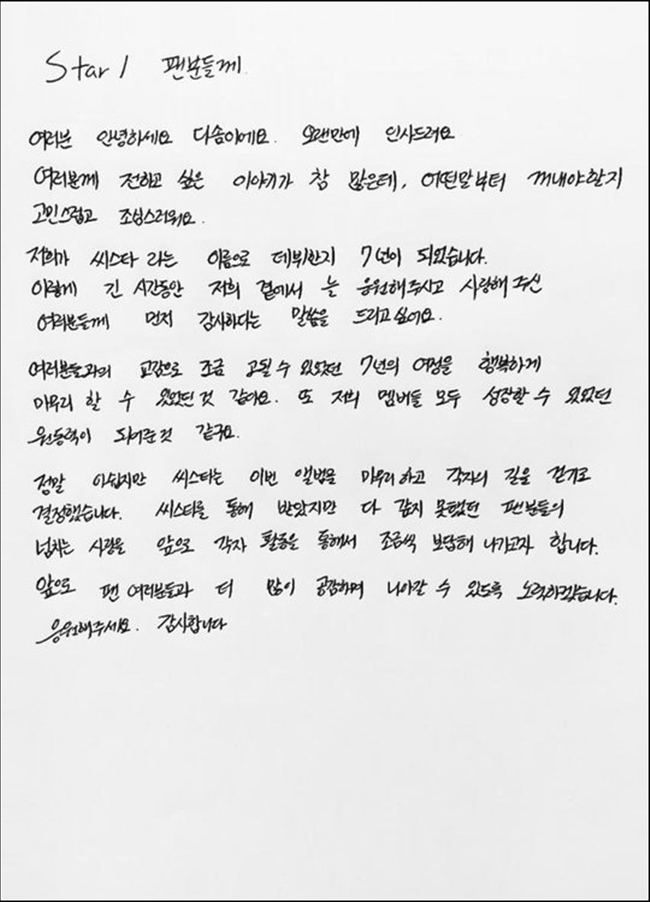 Star1 팬분들께
여러분 안녕하세요 다솜이에요. 오랜만에 인사드려요
여러분께 전하고 싶은 이야기가 참 많은데, 어떤말부터 꺼내야할지
고민스럽고 조심스러워요.
저희가 씨스타 라는 이름으로 데뷔한지 7년이 되었습니다.
이렇게 긴 시간동안 저희 곁에서 늘 응원해주시고 사랑해주신
여러분들께 먼저 감사하다는 말씀을 드리고싶어요.
여러분들과의 교감으로 조금 공될 수 있었던 7년의 여정을 행복하게
마무리 할 수 있었던것 같아요. 또 저희 멤버들 모두 성장할 수 있었던
원동력이 되어준것 같구요.
정말 아쉽지만 씨스타는 이번 앨범을 마무리하고 각자의 길을 걷기로
결정했습니다. 씨스타를 통해 받았지만 다 갚지 못했던 팬분들의
넘치는 사랑을 앞으로 각자 활동을 통해서 조금씩 보답해 나가고자 합니다.
앞으로 팬 여러분들과 더 많이 공감하며 나아갈 수 있도록 노력하겠습니다.
응원해주세요. 감사합니다